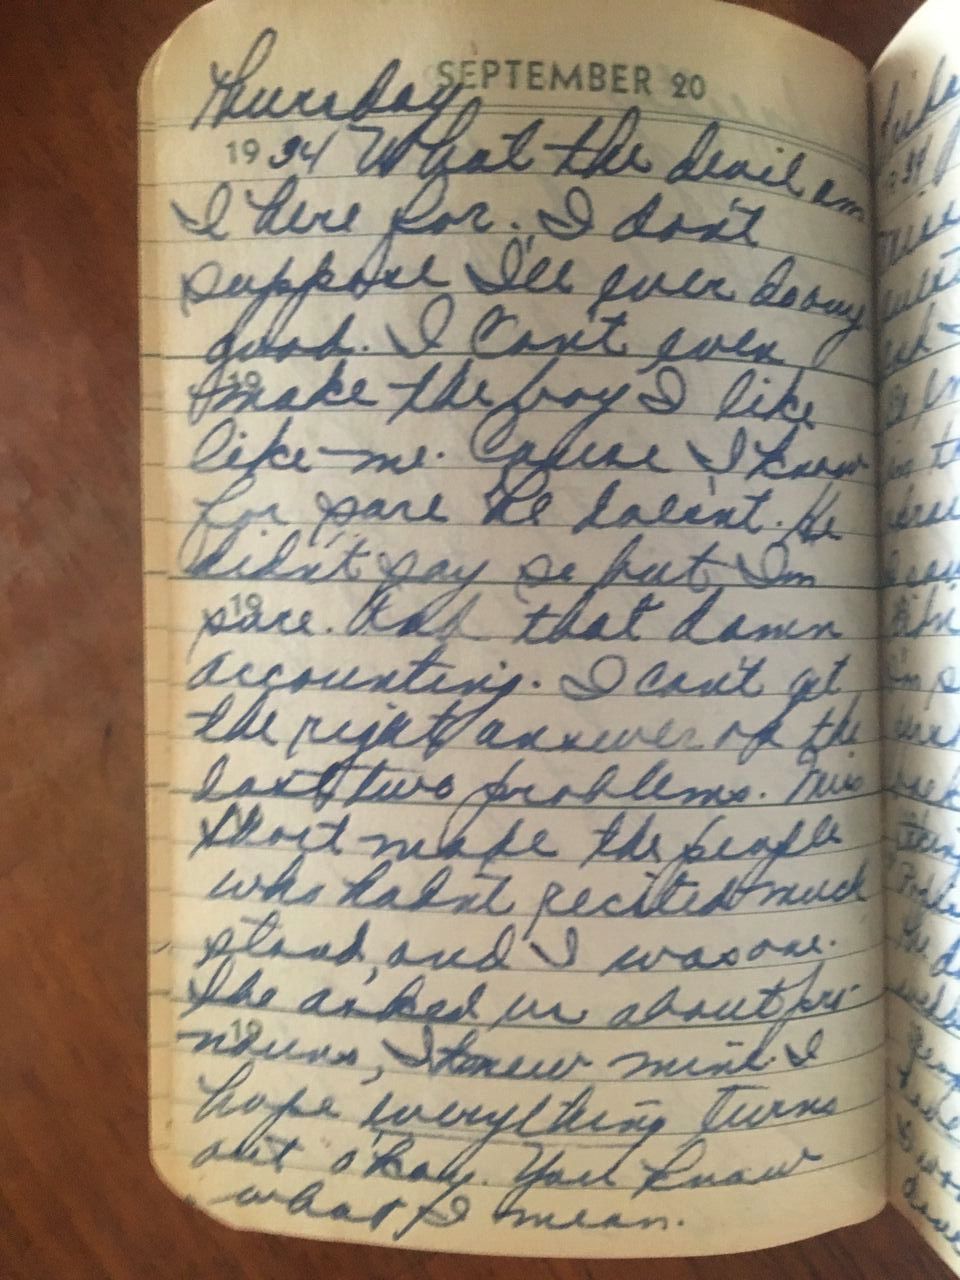 SEPTEMBER 20
Thursday
1934 What the devil am
I here for. I don't
suppose I'll ever do any
good. I can't even
19
make the boy I like
like me. Cause I know
for sure he doesn't. He
didn't say so but I'm
19
sure. And that damn
accounting. I can't get
the right answer on the
last two problems. Miss
Short made the people
who hadn't recited much
stand, and I was one.
She asked us about pro-
19
nouns, I knew mine. I
hope everything turns
out o'kay. You know
what I mean.